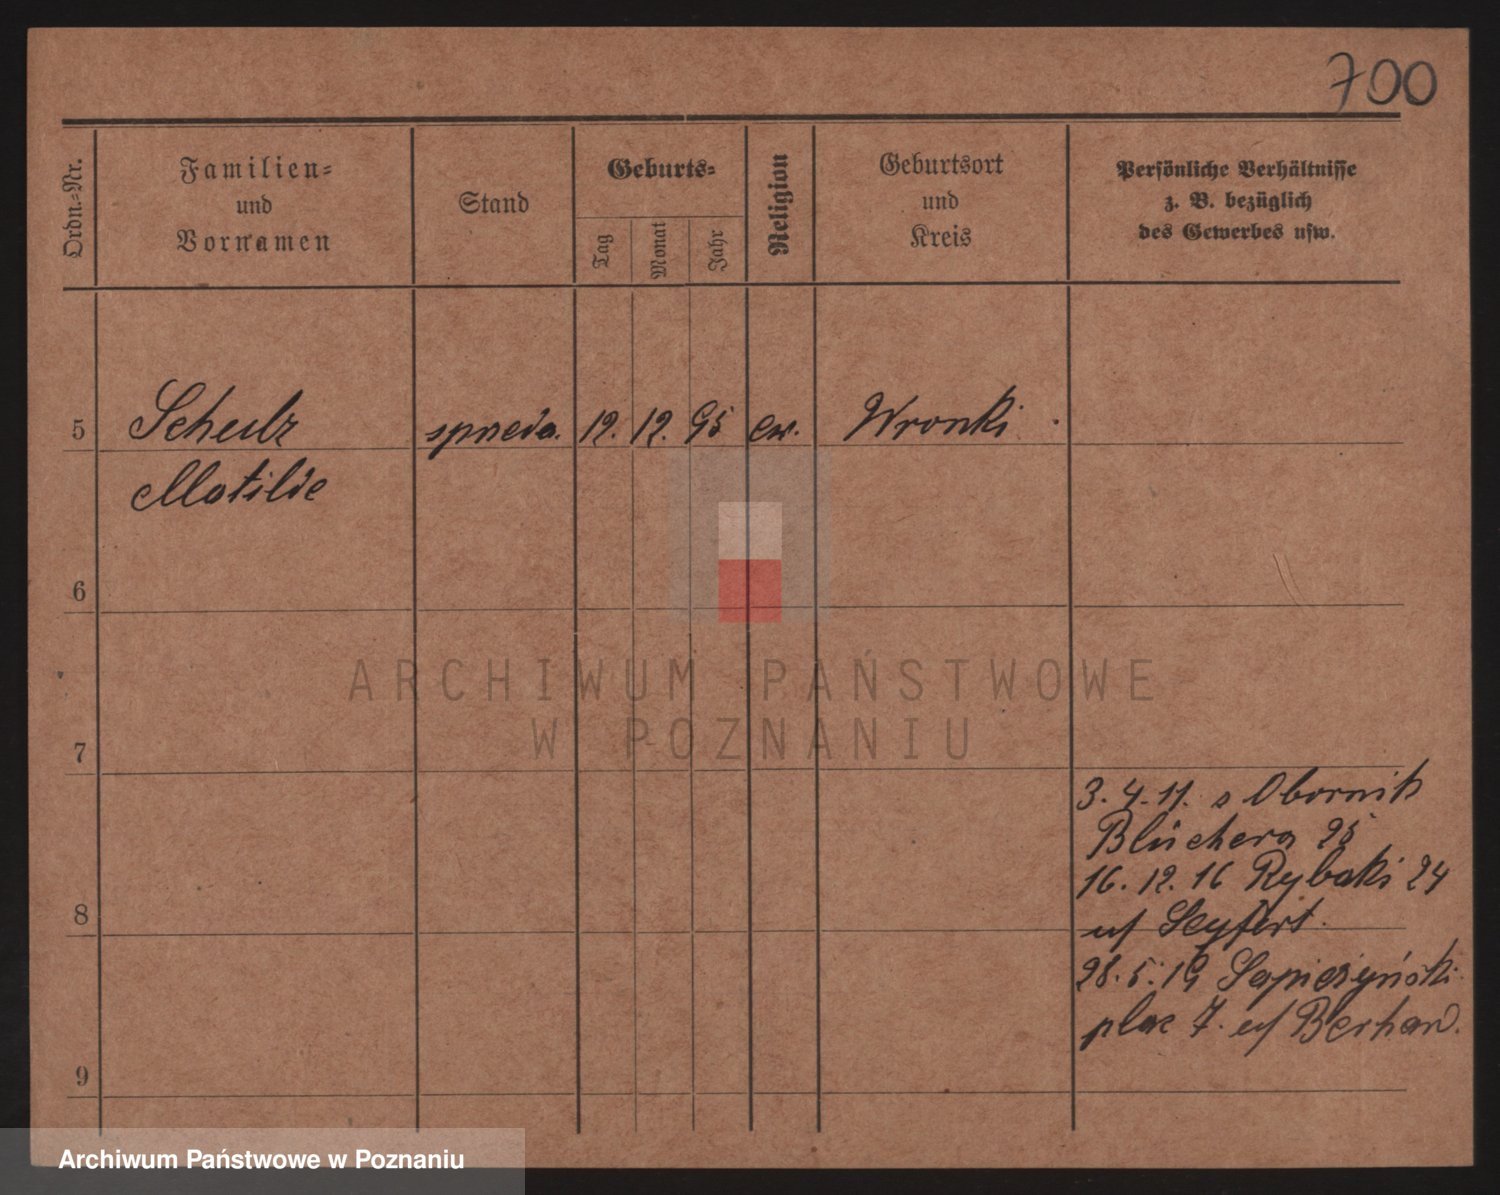 700
Ordn=Nr.
Familien=
und
Vornamen
Stand
Geburts=
Tag
Monat
Jahr
Religion
Geburtsort
und
Kreis
Persönliche Verhältnisse
z. B. bezüglich
des Gewerbes usw.
5
Schulz
Matilde
12. 12. 95
ew.
Wronki
6
7
3. 4. 11. s Obornik
Blüchera 25
16. 12. 16 Rybaki 24
8
u/ Seyfert.
28. 5. 19 Sapieżyński
plac 7. u/ Berhard.
9
ARCHIWUM PAŃSTWOWE
W POZNANIU
Archiwum Państwowe w Poznaniu